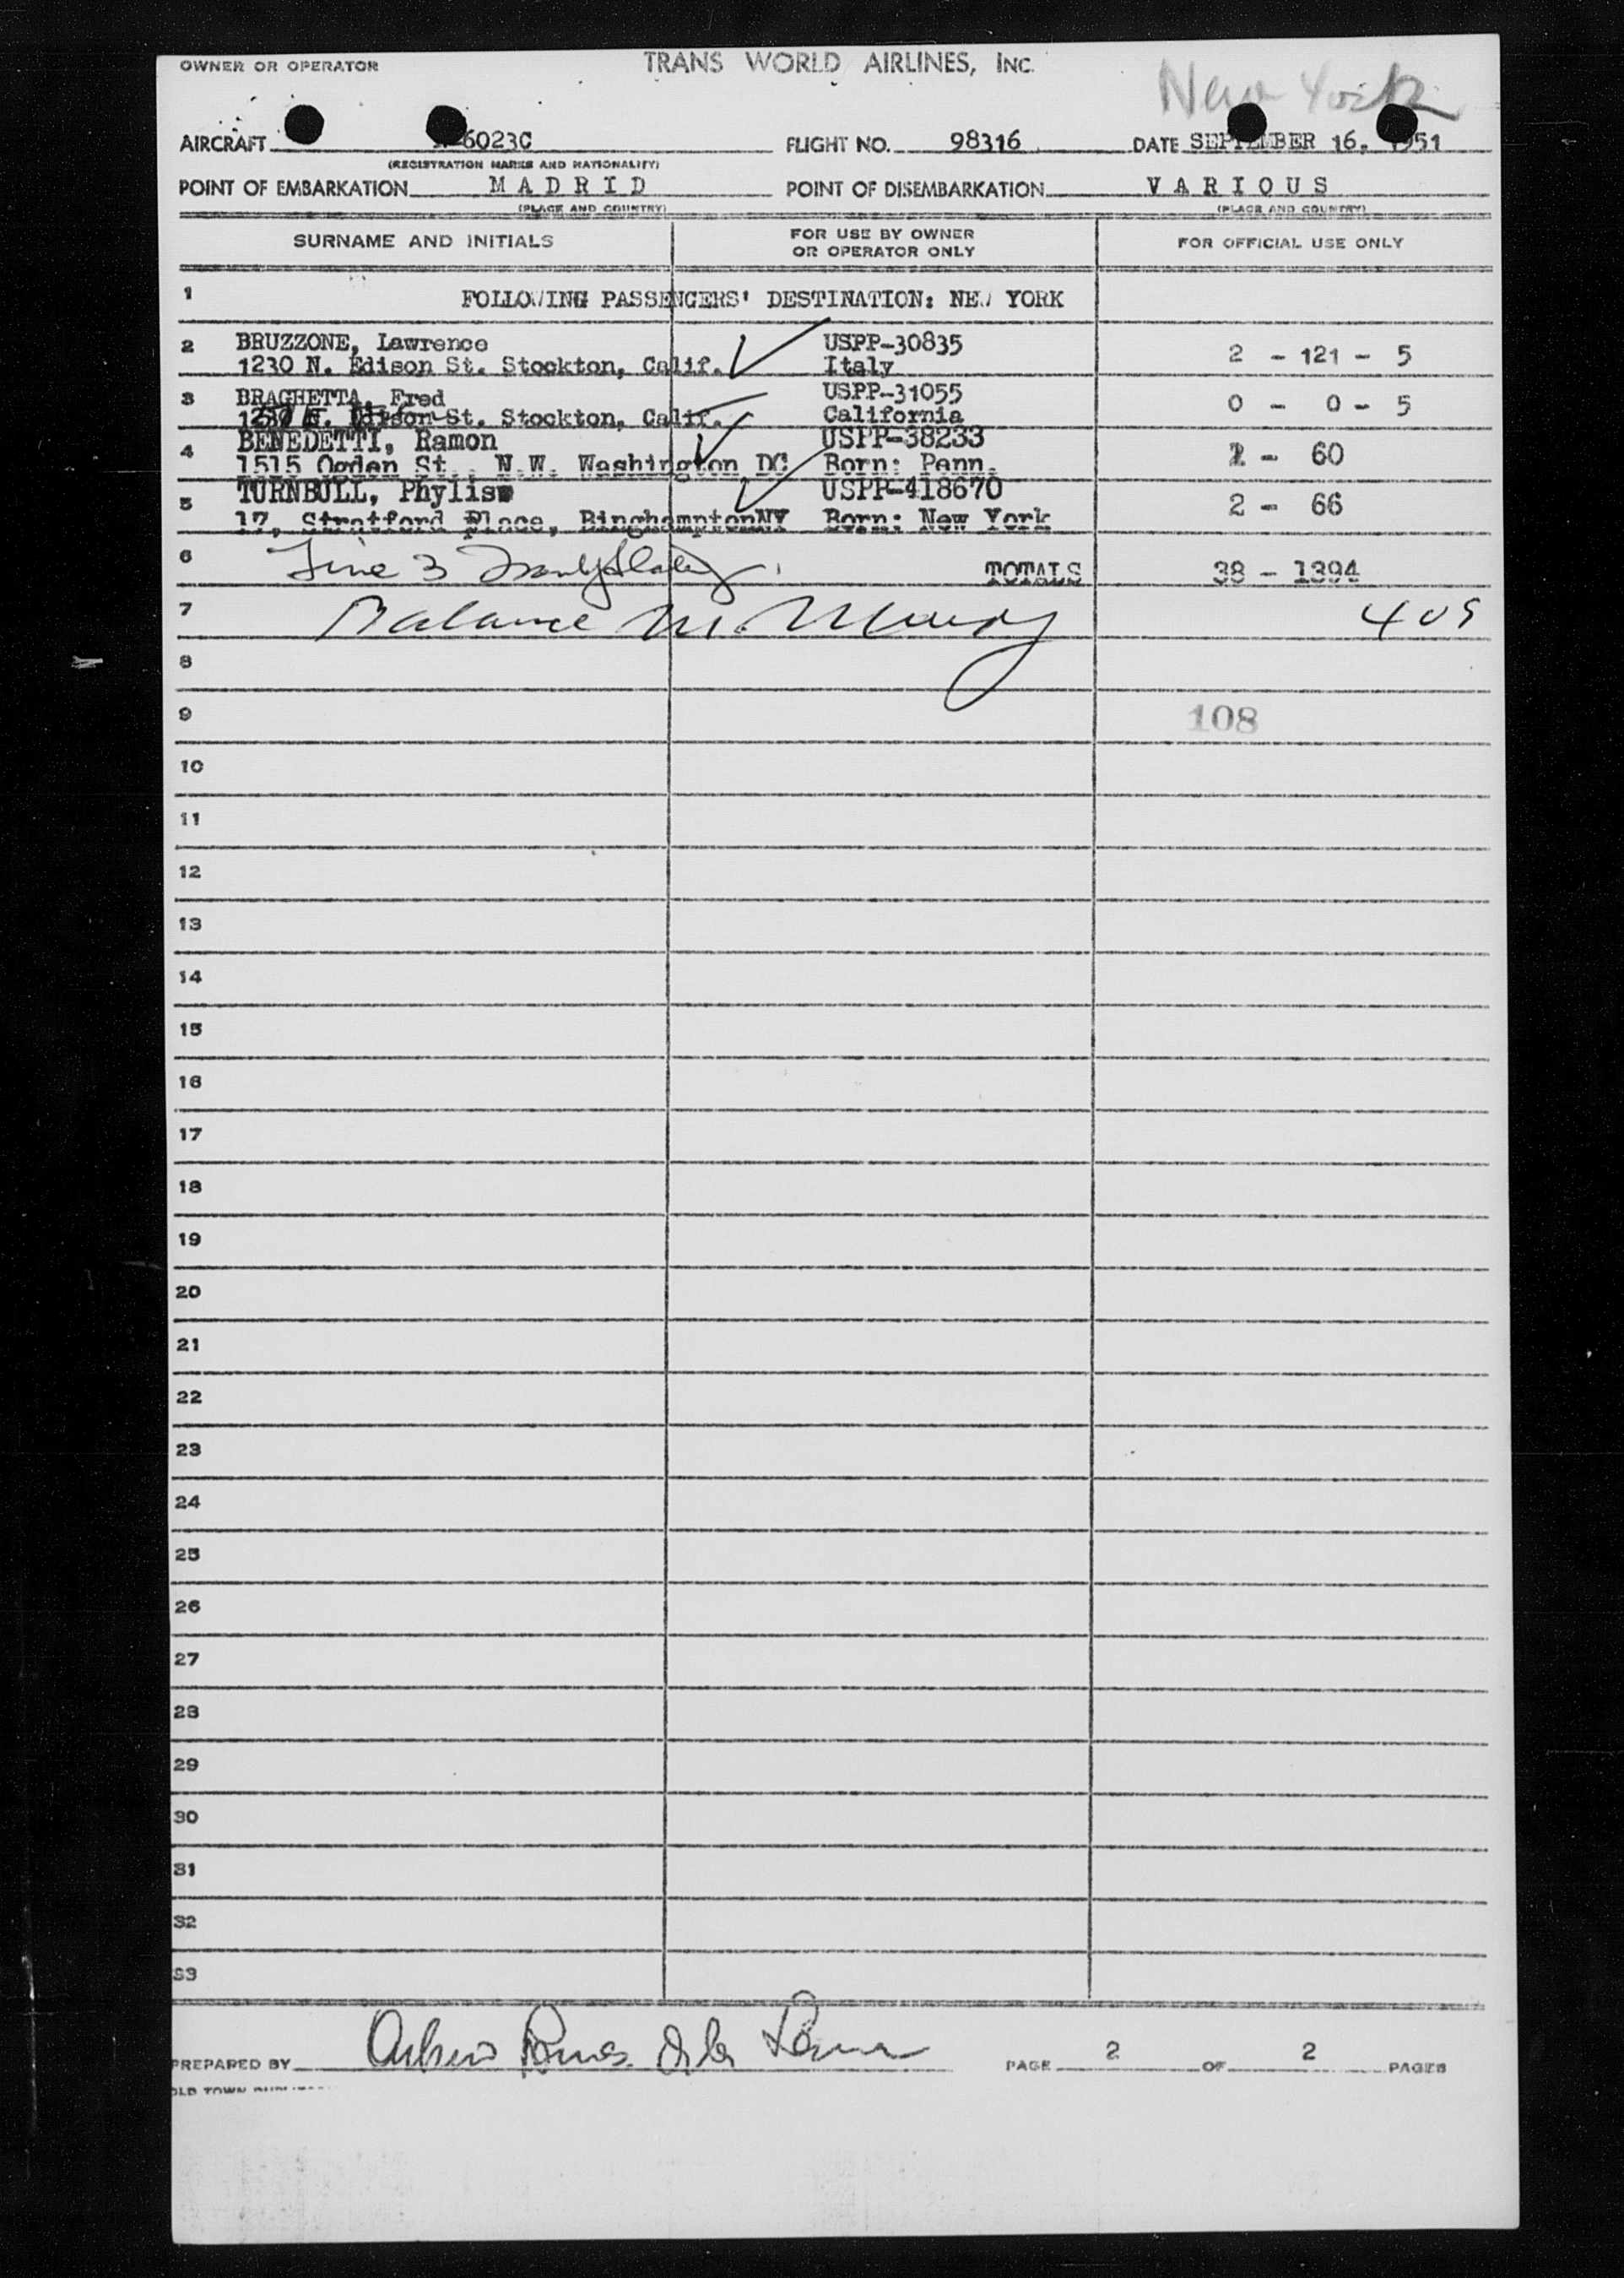 OWNER OR OPERATOR TRANS WORLD AIRLINES, INC.
New York
AIRCRAFT 6023C FLIGHT NO. 98316 DATE SEPTEMBER 16, 1951
(REGISTRATION MARKS AND NATIONALITY)
POINT OF EMBARKATION MADRID POINT OF DISEMBARKATION VARIOUS
(PLACE AND COUNTRY) (PLACE AND COUNTRY)
SURNAME AND INITIALS FOR USE BY OWNER OR OPERATOR ONLY FOR OFFICIAL USE ONLY
1 FOLLOWING PASSENGERS' DESTINATION: NEW YORK
2 BRUZZONE, Lawrence USPP-30835 2 - 121 - 5
1230 N. Edison St. Stockton, Calif. Italy
3 BRAGHETTA, Fred USPP-31055 0 - 0 - 5
St. Stockton, Calif. California
4 BENEDETTI, Ramon USPP-38233 - 60
1515 Ogden St. N.W. Washington DC Born: Penn.
5 TURNBULL, Phylis USPP-418670 2 - 66
17, Stratford Place, Binghampton NY Born: New York
6 Line 3 TOTALS 38 - 1394
7 Balance M. 409
8
9 108
10
11
12
13
14
15
16
17
18
19
20
21
22
23
24
25
26
27
28
29
30
31
32
33
PREPARED BY PAGE 2 OF 2 PAGES
OLD TOWN